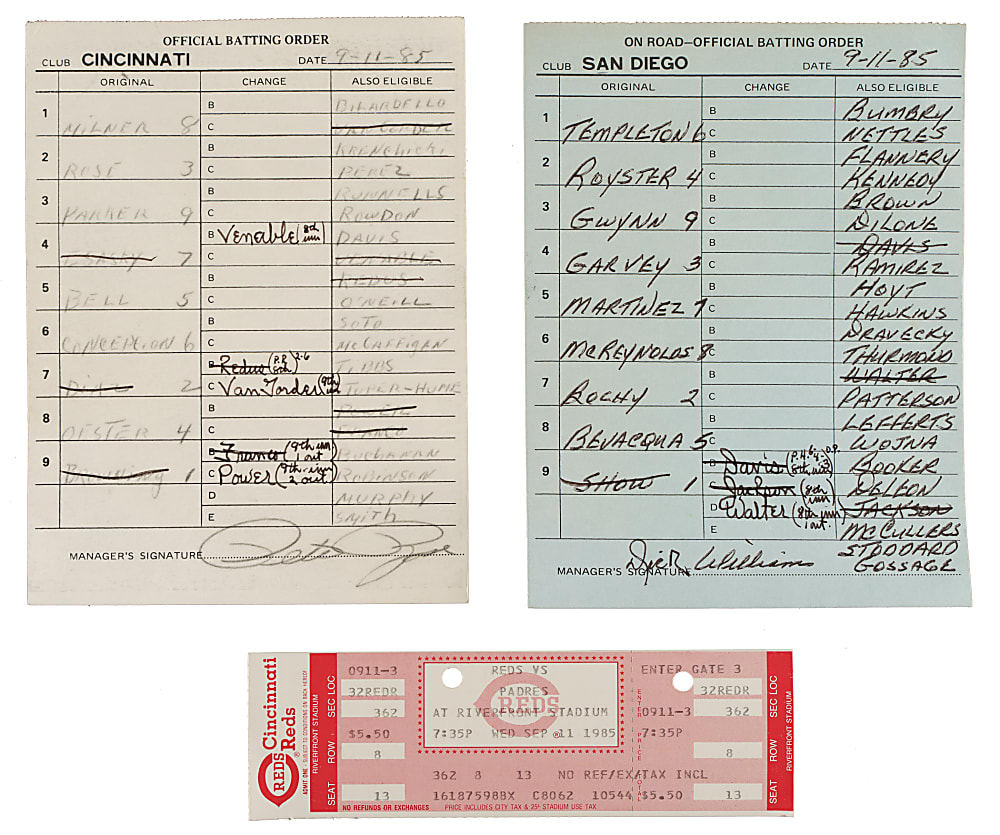 OFFICIAL BATTING ORDER
CLUB CINCINNATI DATE 9-11-85
ORIGINAL CHANGE ALSO ELIGIBLE
B BILARDELLO
1 MILNER 8 C VAN GORDER
B KRENCHICKI
2 ROSE 3 C PEREZ
B RUNNELLS
3 PARKER 9 C ROWDON
4 B Venable (8th inn) DAVIS
ESASKY 7 C VENABLE
B REDUS
5 BELL 5 C O'NEILL
B SOTO
6 CONCEPCION 6 C McGAFFIGAN
7 B Redus (P.R. 8th) 2-6 TIBBS
DIAZ 2 C Van Gorder (9th inn) STUPER-HUME
B POWER
8 OESTER 4 C FRANCO
9 B Franco (9th inn 1 out) BUCHANAN
Browning 1 C Power (9th inn 2 out) ROBINSON
D MURPHY
E SMITH
MANAGER'S SIGNATURE Pete Rose
ON ROAD—OFFICIAL BATTING ORDER
CLUB SAN DIEGO DATE 9-11-85
ORIGINAL CHANGE ALSO ELIGIBLE
B BUMBRY
1 TEMPLETON 6 C NETTLES
B FLANNERY
2 ROYSTER 4 C KENNEDY
B BROWN
3 GWYNN 9 C DILONE
B DAVIS
4 GARVEY 3 C RAMIREZ
B HOYT
5 MARTINEZ 7 C HAWKINS
B DRAVECKY
6 McREYNOLDS 8 C THURMOND
B WALTER
7 BOCHY 2 C PATTERSON
B LEFFERTS
8 BEVACQUA 5 C WOJNA
9 B Davis (P.H. 6-4-3 D.P. 8th inn) BOOKER
SHOW 1 C Jackson (8th inn) DELEON
D Walter (8th inn 1 out) JACKSON
E McCULLERS
STODDARD
MANAGER'S SIGNATURE Dick Williams GOSSAGE
REDS Cincinnati Reds
ADMIT ONE - SUBJECT TO CONDITIONS ON BACK HEREOF
RIVERFRONT STADIUM
SEAT ROW SEC LOC
0911-3
32REDR
362
$5.50
8
13
REDS VS
PADRES
REDS
AT RIVERFRONT STADIUM
7:35P WED SEP 11 1985
362 8 13 NO REF/EX/TAX INCL
16187598BX C8062 10544 $5.50
NO REFUNDS OR EXCHANGES PRICE INCLUDES CITY TAX & 25¢ STADIUM USE TAX
ENTER GATE 3
32REDR
0911-3 362
7:35P
8
13
SEAT ROW SEC LOC
RIVERFRONT STADIUM